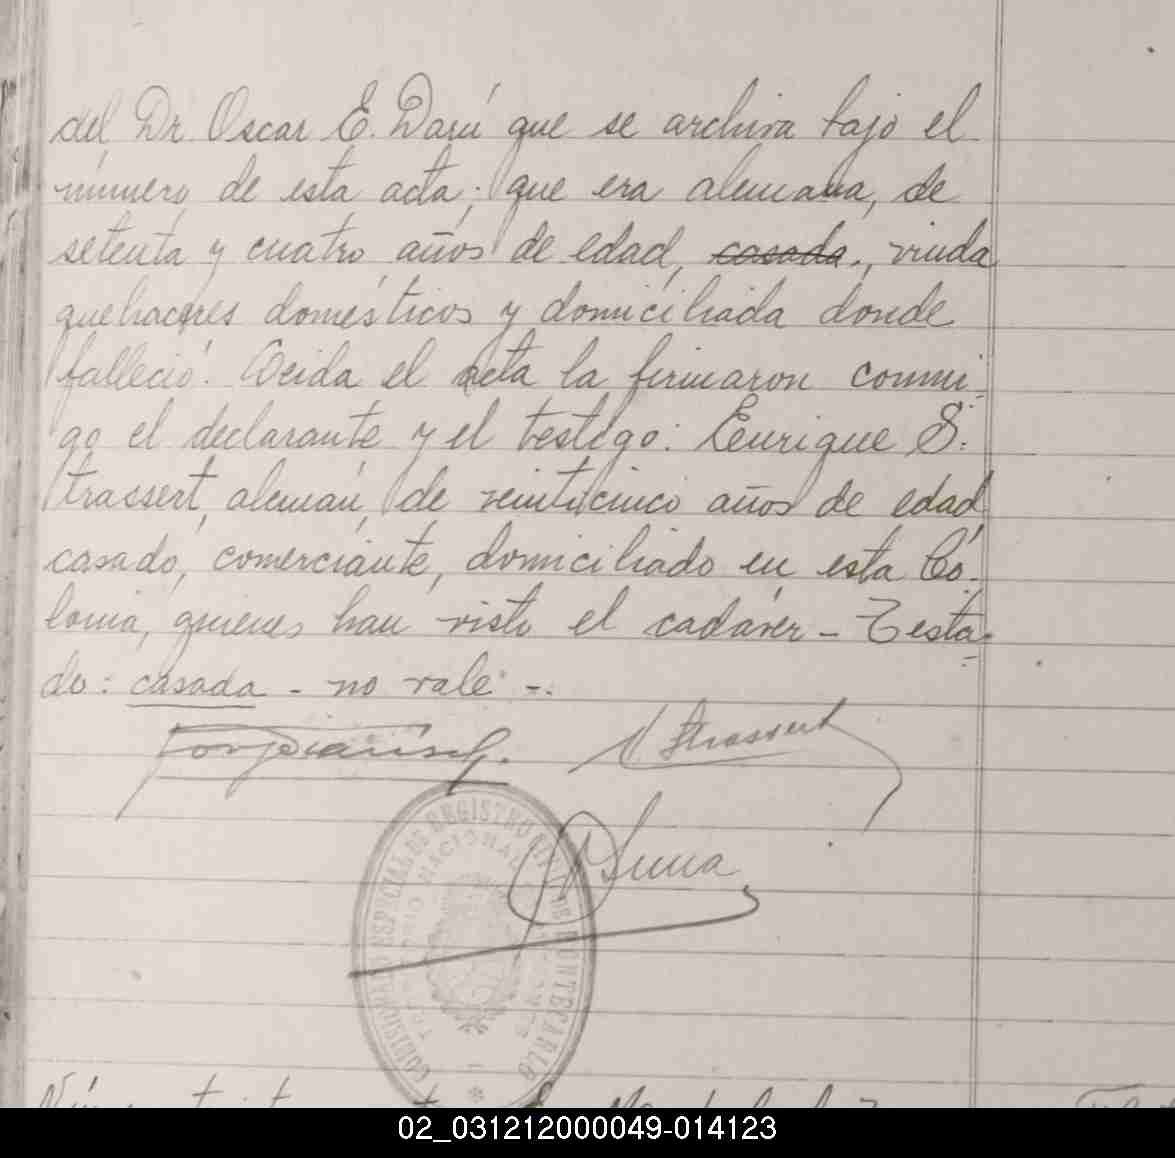 del Dr. Oscar E. Darú que se archiva bajo el
número de esta acta; que era alemana, de
setenta y cuatro años de edad, casada., viuda
quehaceres domésticos y domiciliada donde
falleció. Leida el acta la firmaron conmi-
go el declarante y el testigo: Enrique S.
trassert, alemán, de veinticinco años de edad
casado, comerciante, domiciliado en esta Co-
lonia, quienes han visto el cadáver - Testa-
do: casada - no vale -.
Strassert
COMISIONADO ESPECIAL DE REGISTRO CIVIL DE MONTECARLO
TERRITORIO NACIONAL DE MISIONES
02_031212000049-014123